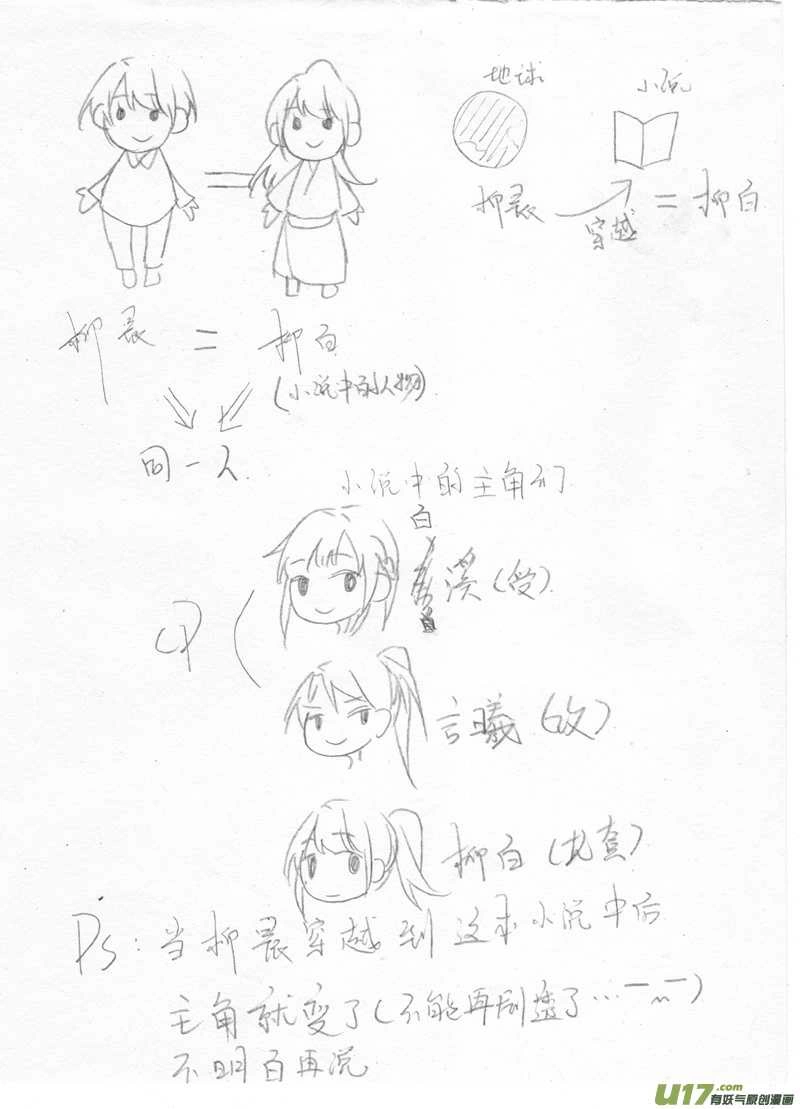 地球
小说
柳晨 穿越 = 柳白
柳晨 = 柳白
(小说中的人物)
同一人
小说中的主角们
白
溪(受)
CP
言曦(攻)
柳白(龙套)
Ps:当柳晨穿越到这本小说中后
主角就变了(不能再剧透了…
不明白再说
U17.com
有妖气原创漫画